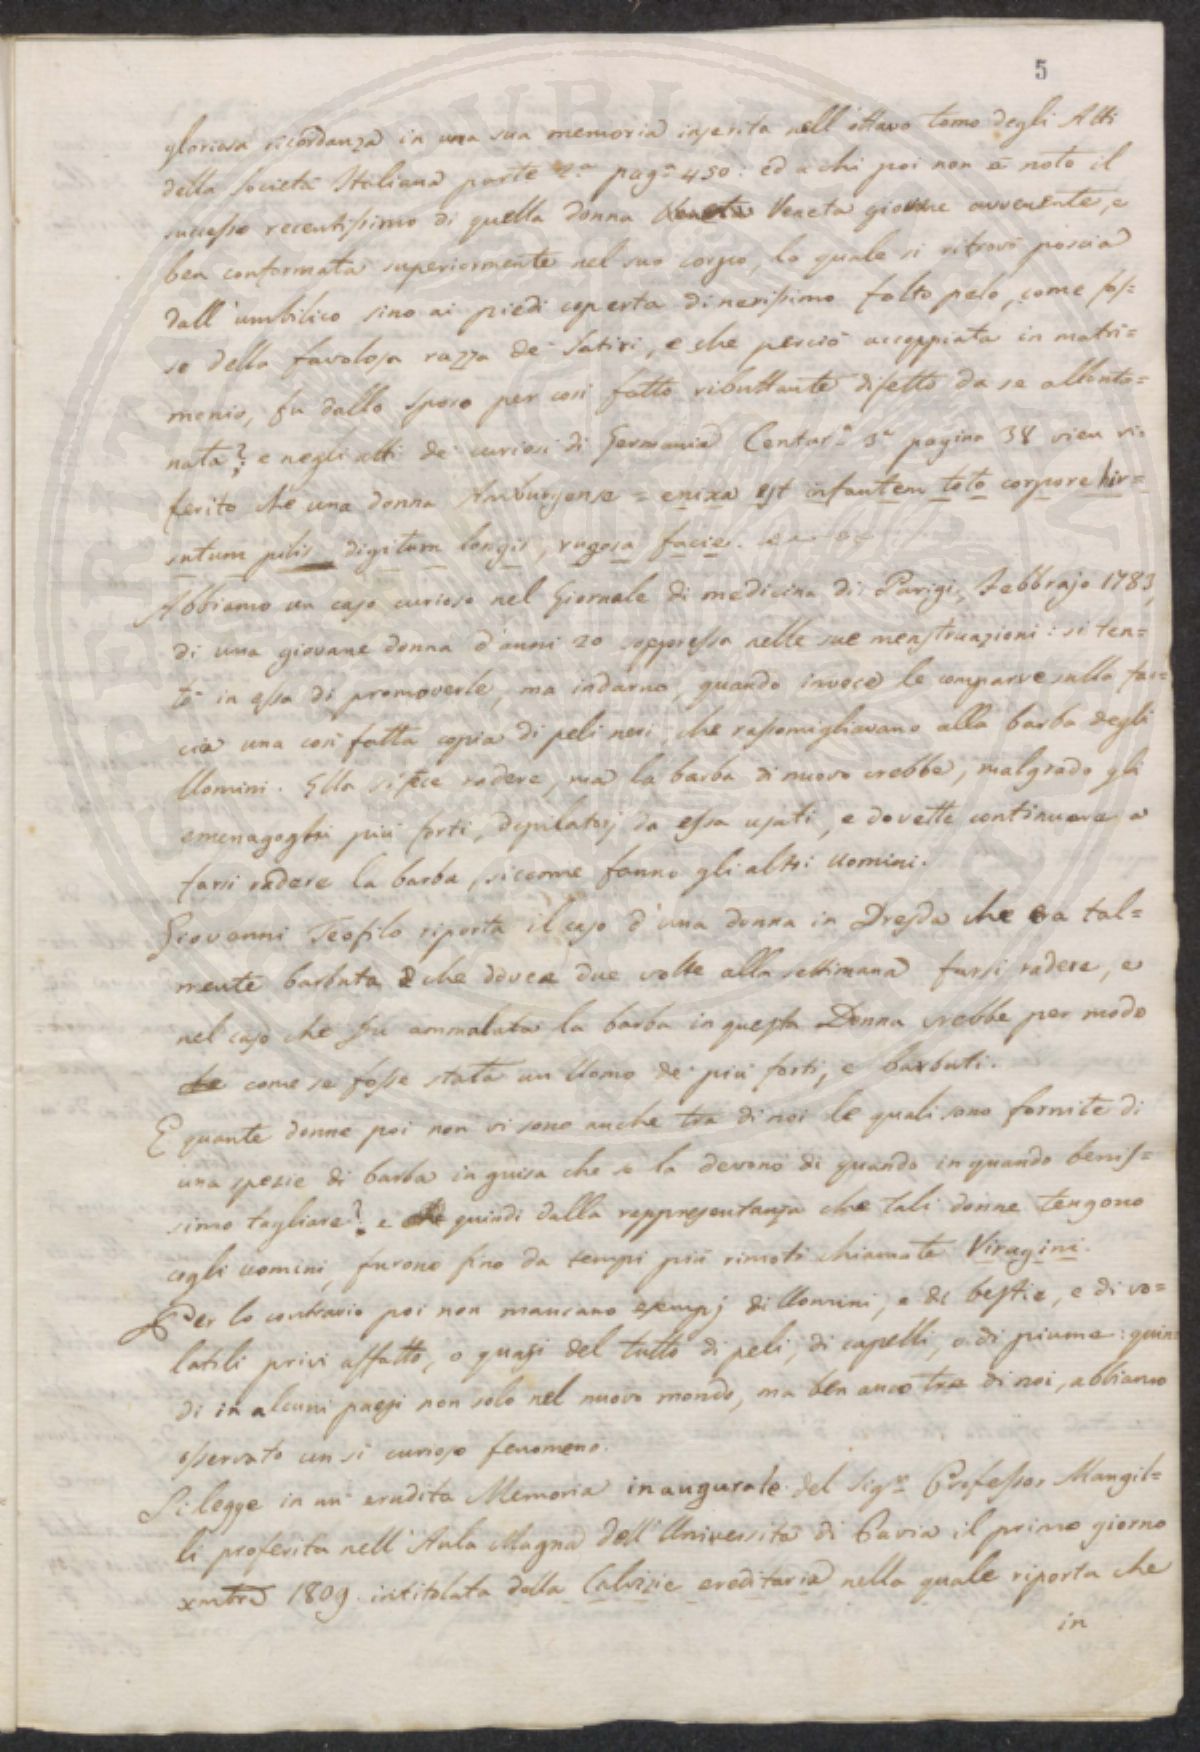 5
gloriosa ricordanza in una sua memoria inserita nell'ottavo tomo degli Atti
della Società Italiana parte 2.a pag.a 450: ed a chi poi non è noto il
successo recentissimo di quella donna Veneta Veneta giovine avvenente, e
ben conformata superiormente nel suo corpo, la quale si ritrovò poscia
dall'umbilico sino ai piedi coperta di nerissimo folto pelo, come fos=
se della favolosa razza de' Satiri, e che perciò accoppiata in matri=
monio, fu dallo sposo per così fatto ributtante difetto da se allonta=
nata?; e negli atti de' curiosi di Germania Centur.a 3.a pagina 38 vien ri=
ferito che una donna Amburgense = enixa est infantem toto corpore hir=
sutum pilis digitum longis, rugosa facie.
Abbiamo un caso curioso nel Giornale di medicina di Parigi, Febbrajo 1783,
di una giovane donna d'anni 20 soppressa nelle sue menstruazioni: si ten=
tò in essa di promoverle, ma indarno, quando invece le comparve sulla fac=
cia una così fatta copia di peli neri che rassomigliavano alla barba degli
Uomini. Ella si fece radere, ma la barba di nuovo crebbe, malgrado gli
emenagoghi più forti, depilatorj da essa usati, e dovette continuare a
farsi radere la barba, siccome fanno gli altri Uomini.
Giovanni Teofilo riporta il caso d'una donna in Dresda che era tal=
mente barbuta che dovea due volte alla settimana farsi radere, e
nel caso che fu ammalata la barba in questa Donna crebbe per modo
che come se fosse stata un Uomo de' più forti, e barbuti.
E quante donne poi non vi sono anche tra di noi le quali sono fornite di
una spezie di barba in guisa che se la devono di quando in quando benis=
simo tagliare?; e quindi dalla rappresentanza che tali donne tengono
cogli uomini, furono fino da tempi più rimoti chiamate Viragini.
Per lo contrario poi non mancano esempj di Uomini, e di bestie, e di vo=
latili privi affatto, o quasi del tutto di peli, di capelli, o di piume: quin=
di in alcuni paesi non solo nel nuovo mondo, ma ben anco tra di noi, abbiamo
osservato un sì curioso fenomeno.
Si legge in un' erudita Memoria inaugurale del Sig.r Professor Mangil=
li proferita nell'Aula Magna dell'Università di Pavia il primo giorno
xmbre 1809 intitolata della Calvizie ereditaria nella quale riporta che
in